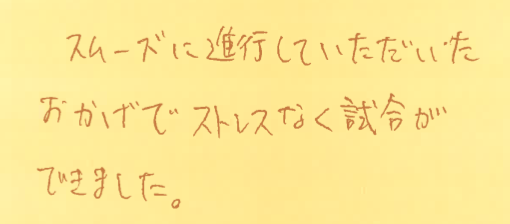 スムーズに進行していただいた
おかげでストレスなく試合が
できました。